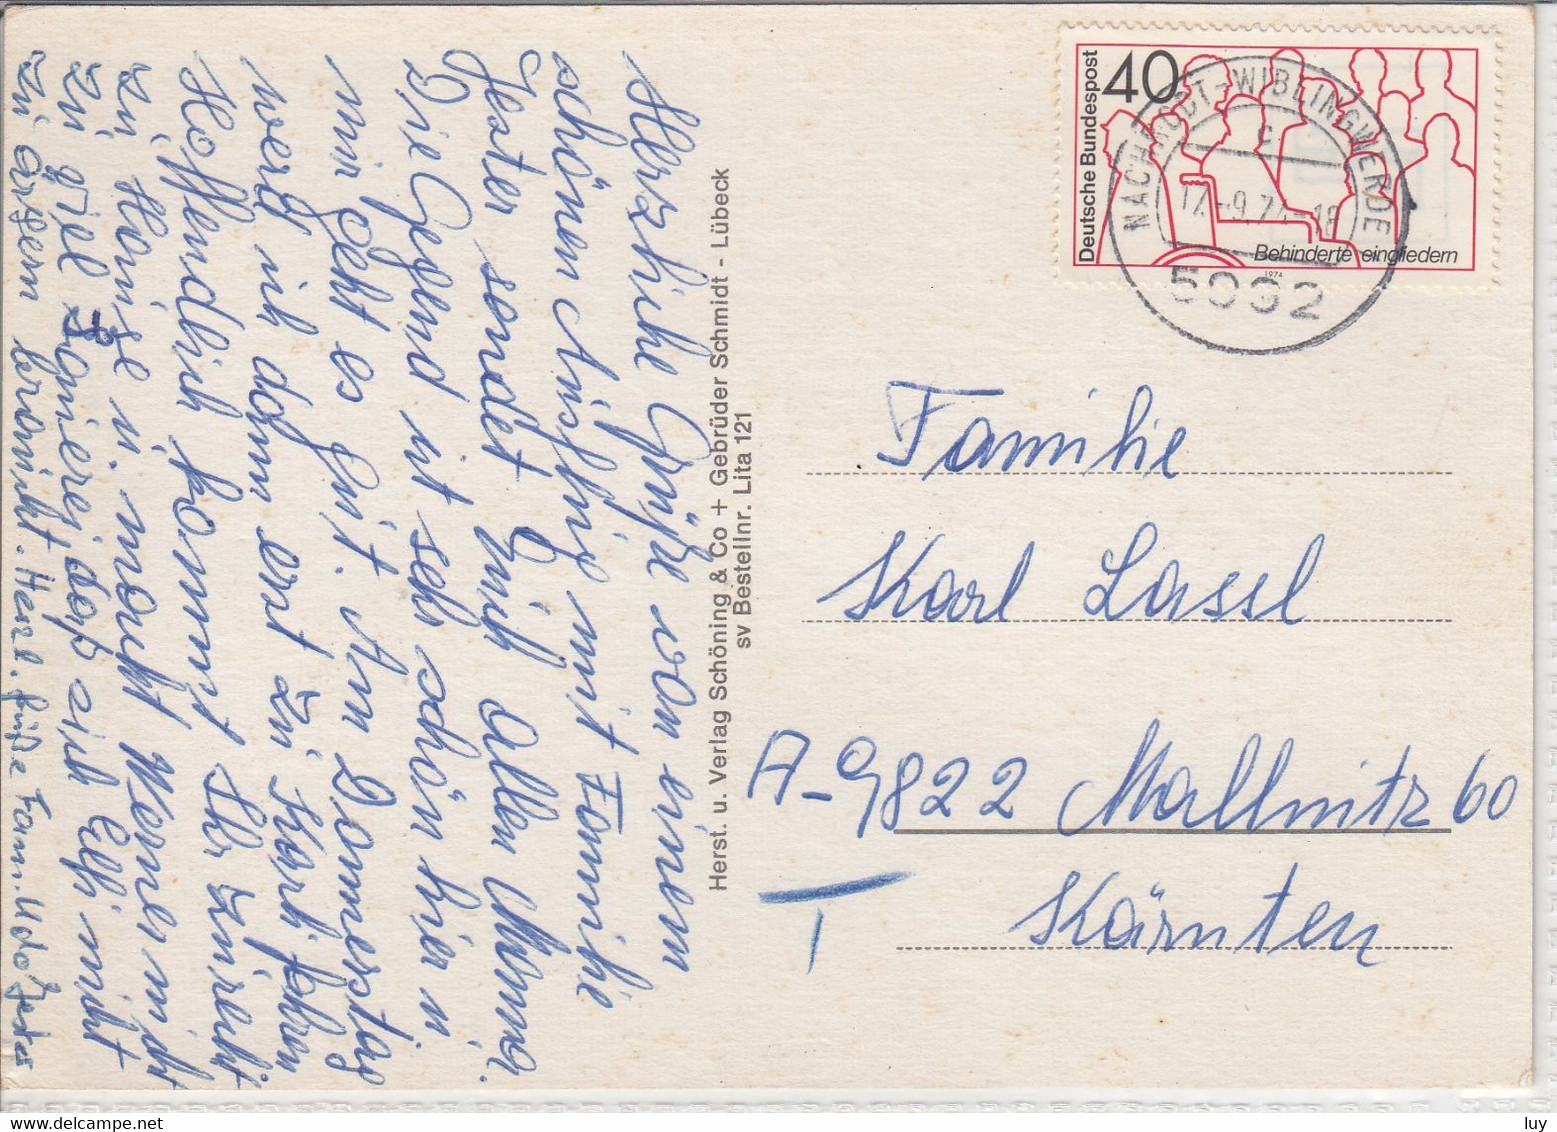 Herzliche Grüße von einem
schönen Ausflug mit Familie
Jester sendet Euch allen Mama.
Die Gegend ist sehr schön hier u.
mir geht es gut. Am Donnerstag
werd ich dann erst zu Karli fahren
Hoffendlich kommt Ihr zurecht
zu Hause u. macht Mone nicht
zu viel Samierei daß sich Elfi nicht
zu ärgern braucht. Herzl. Grüße Fam. Udo Jester
Herst. u. Verlag Schöning & Co + Gebrüder Schmidt - Lübeck
sv Bestellnr. Lita 121
Deutsche Bundespost
40
Behinderte eingliedern
1974
NACHRODT-WIBLINGWERDE
c
17.-9.74-18
Familie
Karl Lassl
A-9822 Mallnitz 60
Kärnten
luy